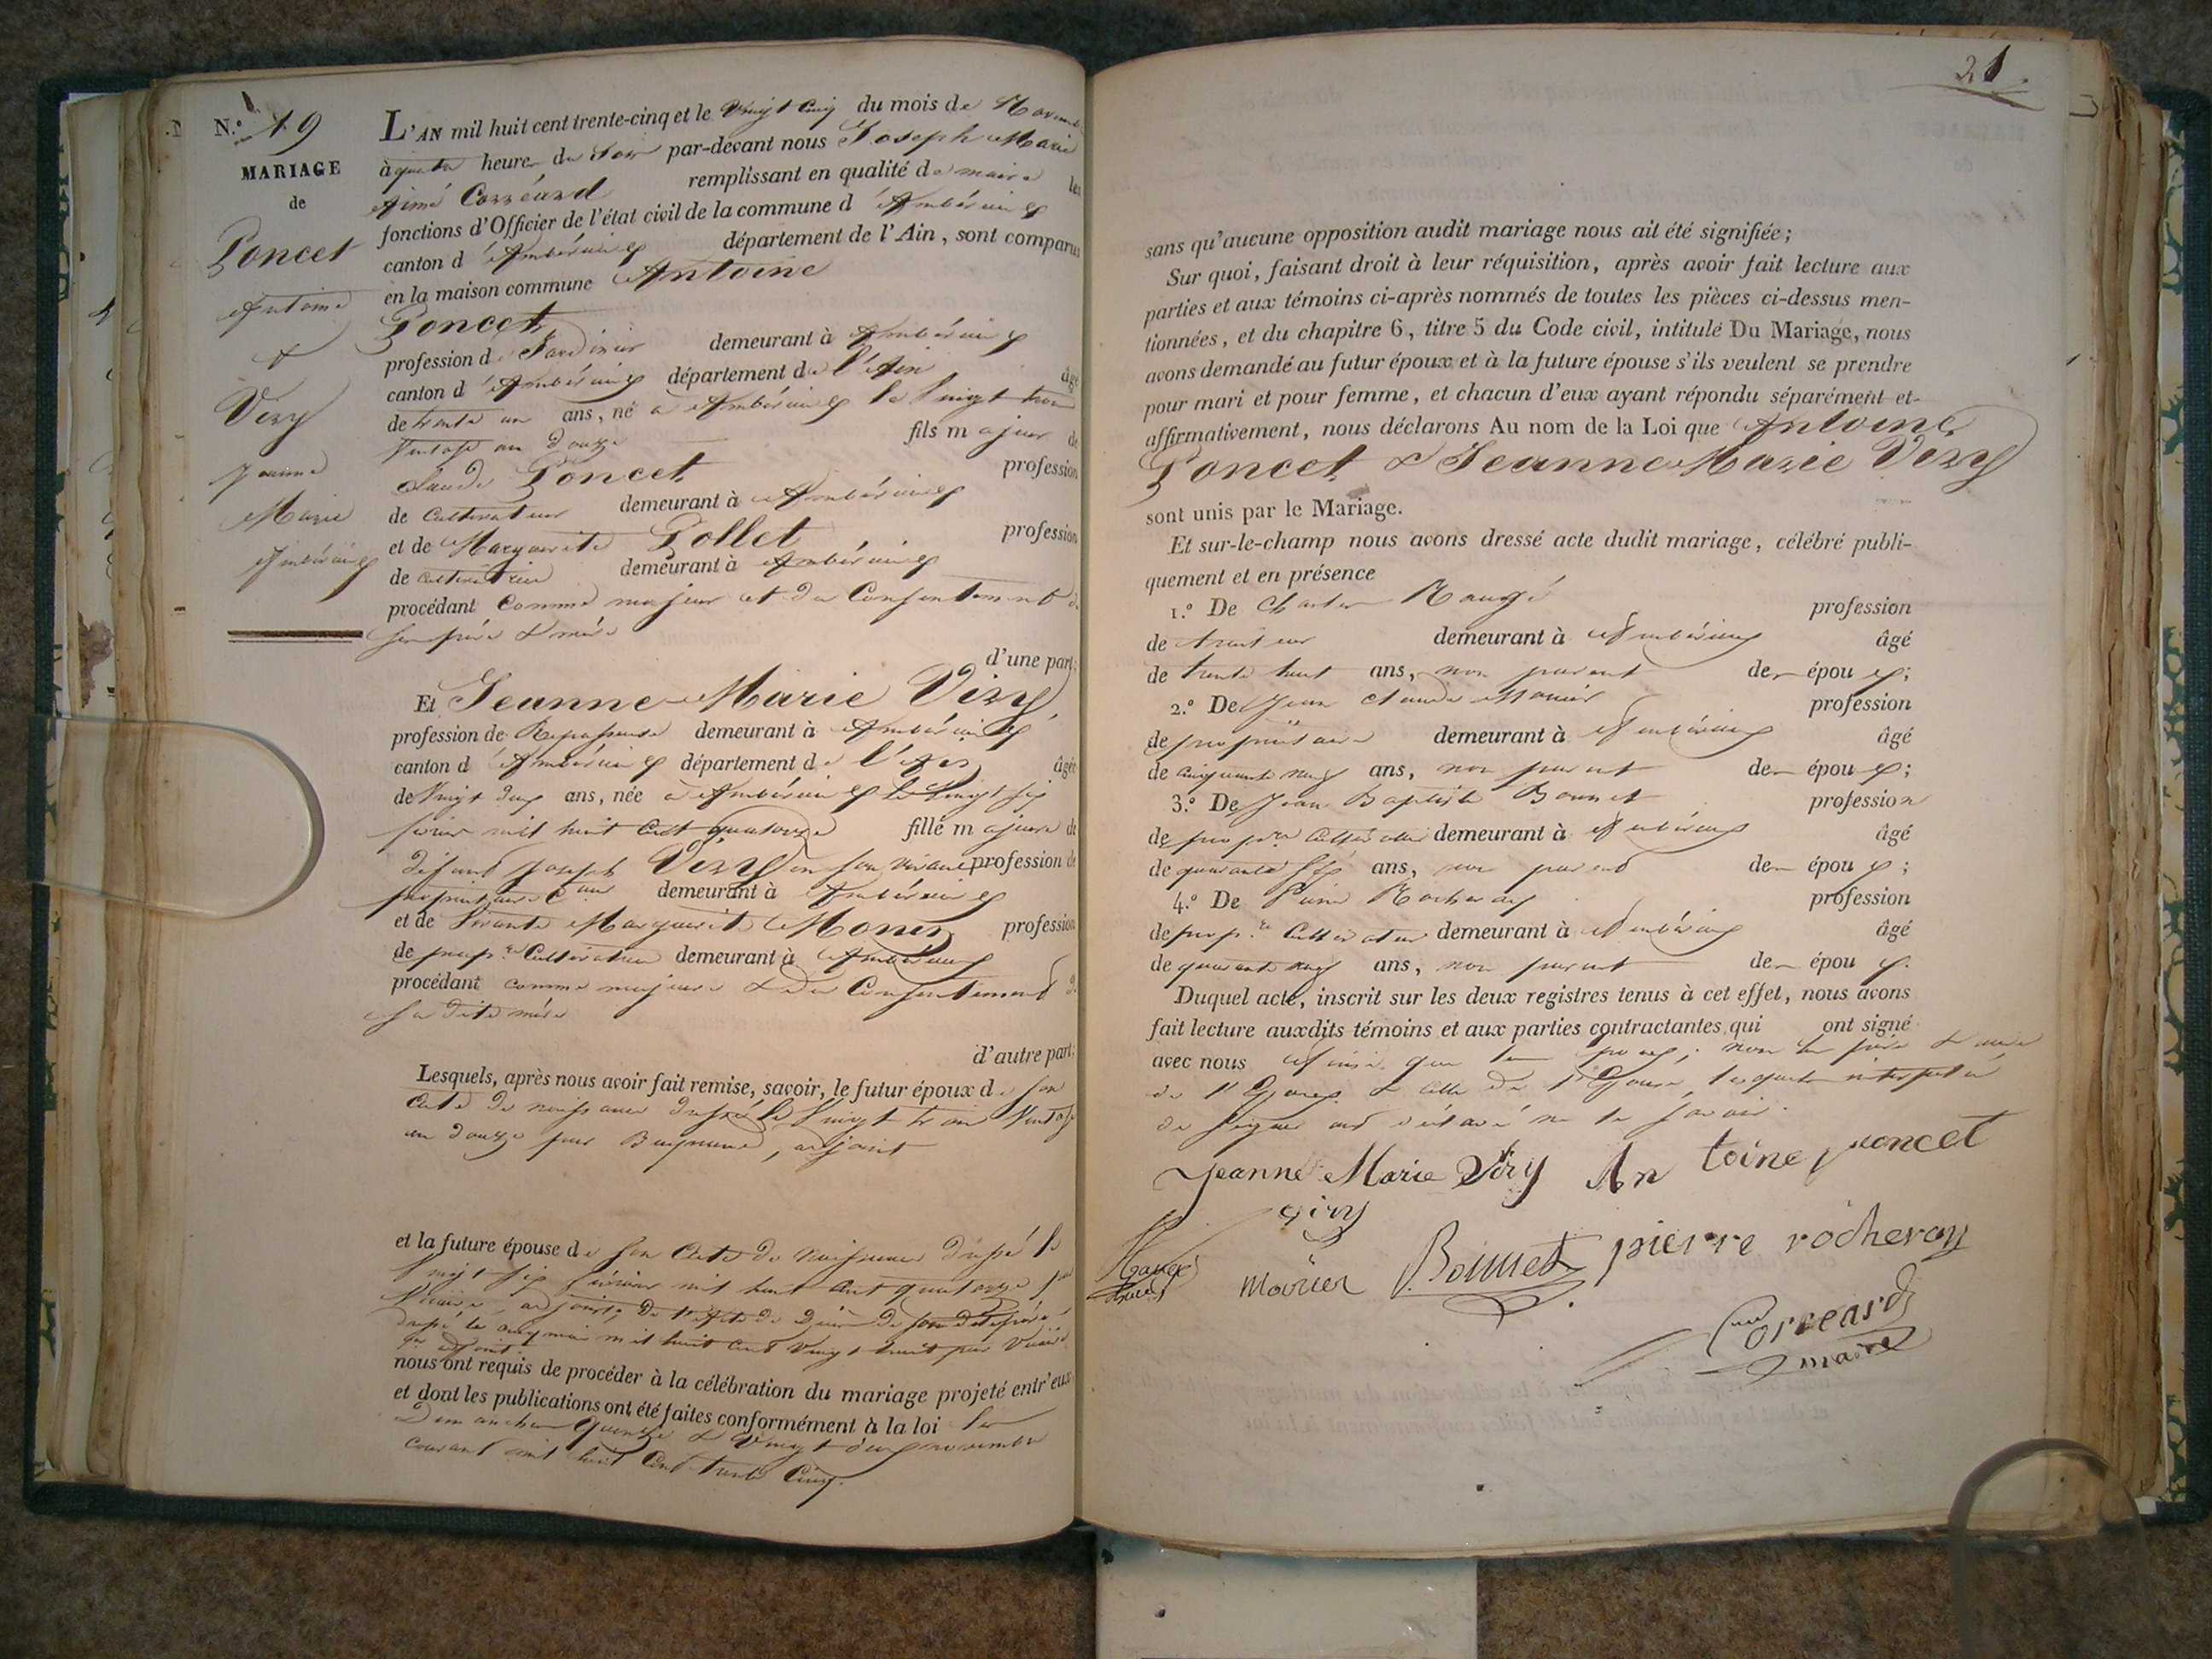 N.º 19
MARIAGE
de
Poncet
Antoine
&
Véry
Jeanne
Marie
Ambérieux
L'AN mil huit cent trente-cinq et le vingt cinq du mois de Novembre
à quatre heures du soir par-devant nous Joseph Marie
Aimé Corréard remplissant en qualité de maire les
fonctions d'Officier de l'état civil de la commune d'Ambérieux
canton d'Ambérieux département de l'Ain, sont comparus
en la maison commune Antoine
Poncet
profession de Jardinier demeurant à Ambérieux
canton d'Ambérieux département de l'Ain âgé
de trente un ans, né à Ambérieux le vingt trois
Ventose an douze fils majeur de
Claude Poncet profession
de Cultivateur demeurant à Ambérieux
et de Marguerite Pollet profession
de cultivatrice demeurant à Ambérieux
procédant comme majeur et du Consentement de
ses père & mère
d'une part;
Et Jeanne Marie Véry
profession de Repasseuse demeurant à Ambérieux
canton d'Ambérieux département de l'Ain âgée
de vingt deux ans, née à Ambérieux le vingt six
février mil huit cent quatorze fille majeure de
défunt Joseph Véry en son vivant profession de
propriétaire demeurant à Ambérieux
et de vivante Marguerite profession
de prop.re Cultivatrice demeurant à Ambérieux
procédant comme majeure & du Consentement de
sa dite mère
d'autre part;
Lesquels, après nous avoir fait remise, savoir, le futur époux de son
acte de naissance dressé le vingt trois Ventose
an douze par adjoint
et la future épouse de son acte de naissance dressé le
vingt six février mil huit cent quatorze par
adjoint; de l'acte de décès de son dit père
dressé le cinq mai mil huit cent vingt huit par
adjoint
nous ont requis de procéder à la célébration du mariage projeté entr'eux
et dont les publications ont été faites conformément à la loi les
Dimanches quinze & vingt deux novembre
courant mil huit cent trente cinq.
21
sans qu'aucune opposition audit mariage nous ait été signifiée;
Sur quoi, faisant droit à leur réquisition, après avoir fait lecture aux
parties et aux témoins ci-après nommés de toutes les pièces ci-dessus men-
tionnées, et du chapitre 6, titre 5 du Code civil, intitulé Du Mariage, nous
avons demandé au futur époux et à la future épouse s'ils veulent se prendre
pour mari et pour femme, et chacun d'eux ayant répondu séparément et
affirmativement, nous déclarons Au nom de la Loi que Antoine
Poncet & Jeanne Marie Véry
sont unis par le Mariage.
Et sur-le-champ nous avons dressé acte dudit mariage, célébré publi-
quement et en présence
1.º De Charles Rougé profession
de traiteur demeurant à Ambérieux âgé
de trente huit ans, non parent des époux;
2.º De Jean Claude profession
de propriétaire demeurant à Ambérieux âgé
de cinquante neuf ans, non parent des époux;
3.º De Jean Baptiste Bonnet profession
de prop.re Cultivateur demeurant à Ambérieux âgé
de quarante six ans, non parent des époux;
4.º De Pierre Rocheray profession
de prop.re Cultivateur demeurant à Ambérieux âgé
de quarante neuf ans, non parent des époux.
Duquel acte, inscrit sur les deux registres tenus à cet effet, nous avons
fait lecture auxdits témoins et aux parties contractantes qui ont signé
avec nous ainsi que les époux; non les père & mère
de l'Epoux & celle de l'Epouse, lesquels interpellés
de signer ont déclaré ne le savoir.
Jeanne Marie Véry Antoine poncet
Bonnet pierre rocheray
Correard
maire